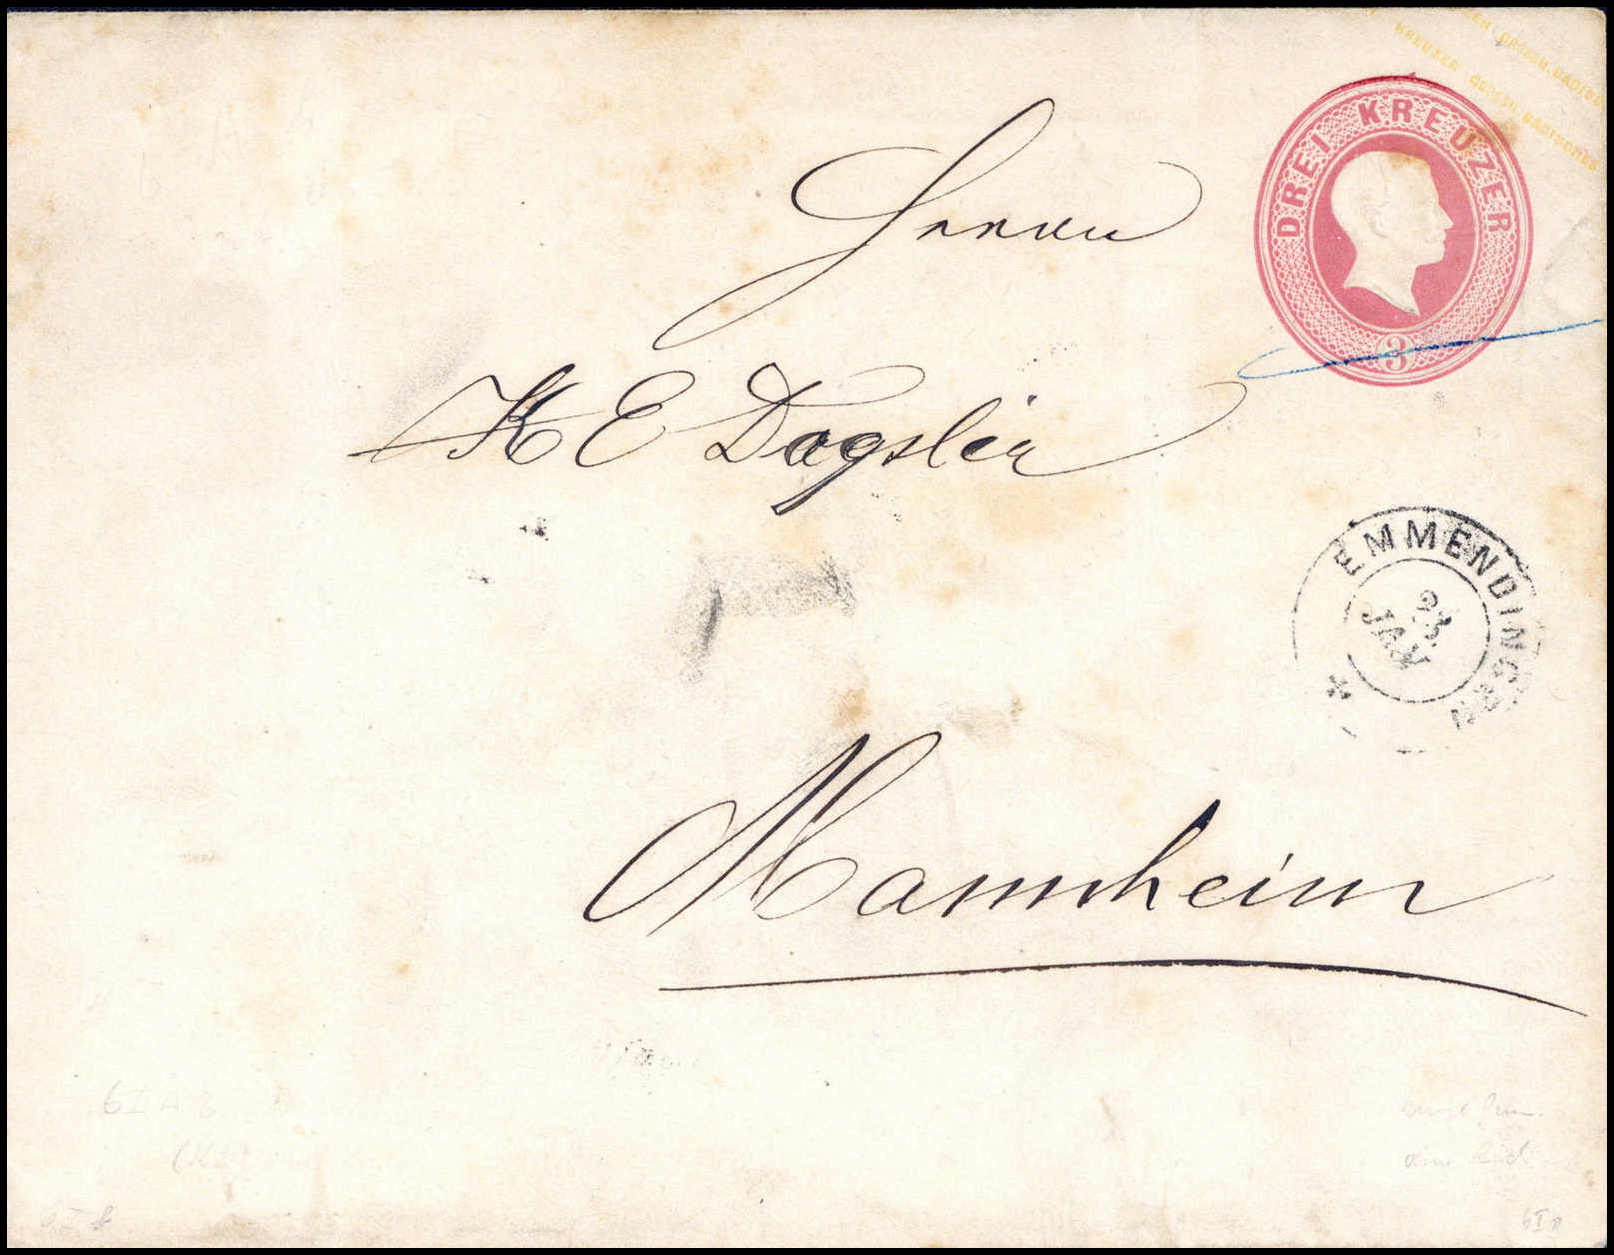 KREUZER GROSSH. BADISCHES
DREI KREUZER
3
Herrn
K E Dagslir
EMMENDINGEN
23
JAN
Mannheim
6 I A